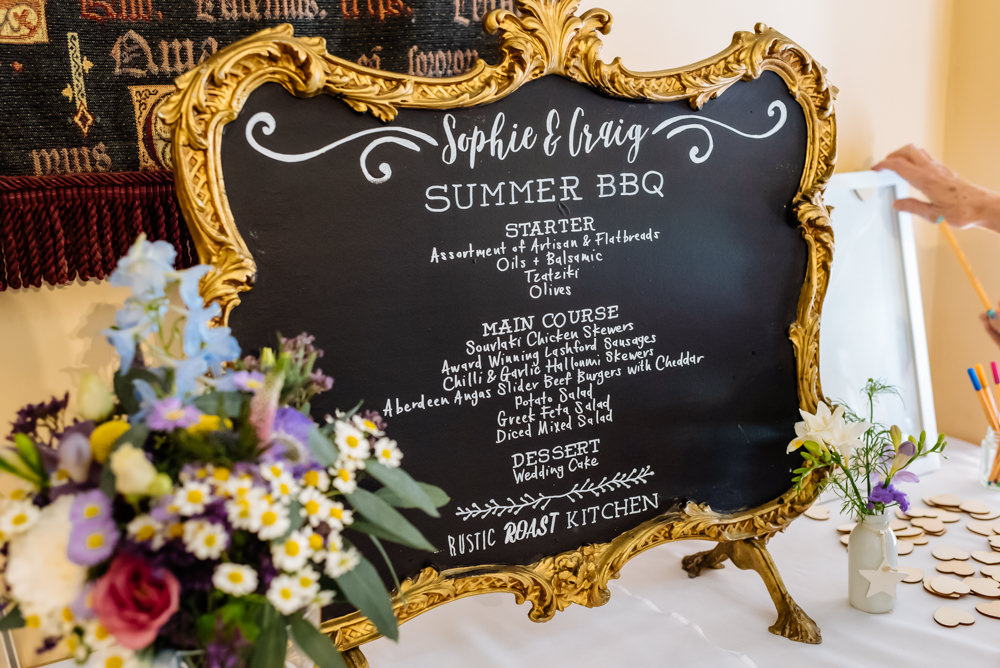 Sophie & Craig
SUMMER BBQ
STARTER
Assortment of Artisan & Flatbreads
Oils + Balsamic
Tzatziki
Olives
MAIN COURSE
Souvlaki Chicken Skewers
Award Winning Lashford Sausages
Chilli & Garlic Hallonmi Skewers
Aberdeen Angas Slider Beef Burgers with Cheddar
Potato Salad
Greek Feta Salad
Diced Mixed Salad
DESSERT
Wedding Cake
RUSTIC ROAST KITCHEN